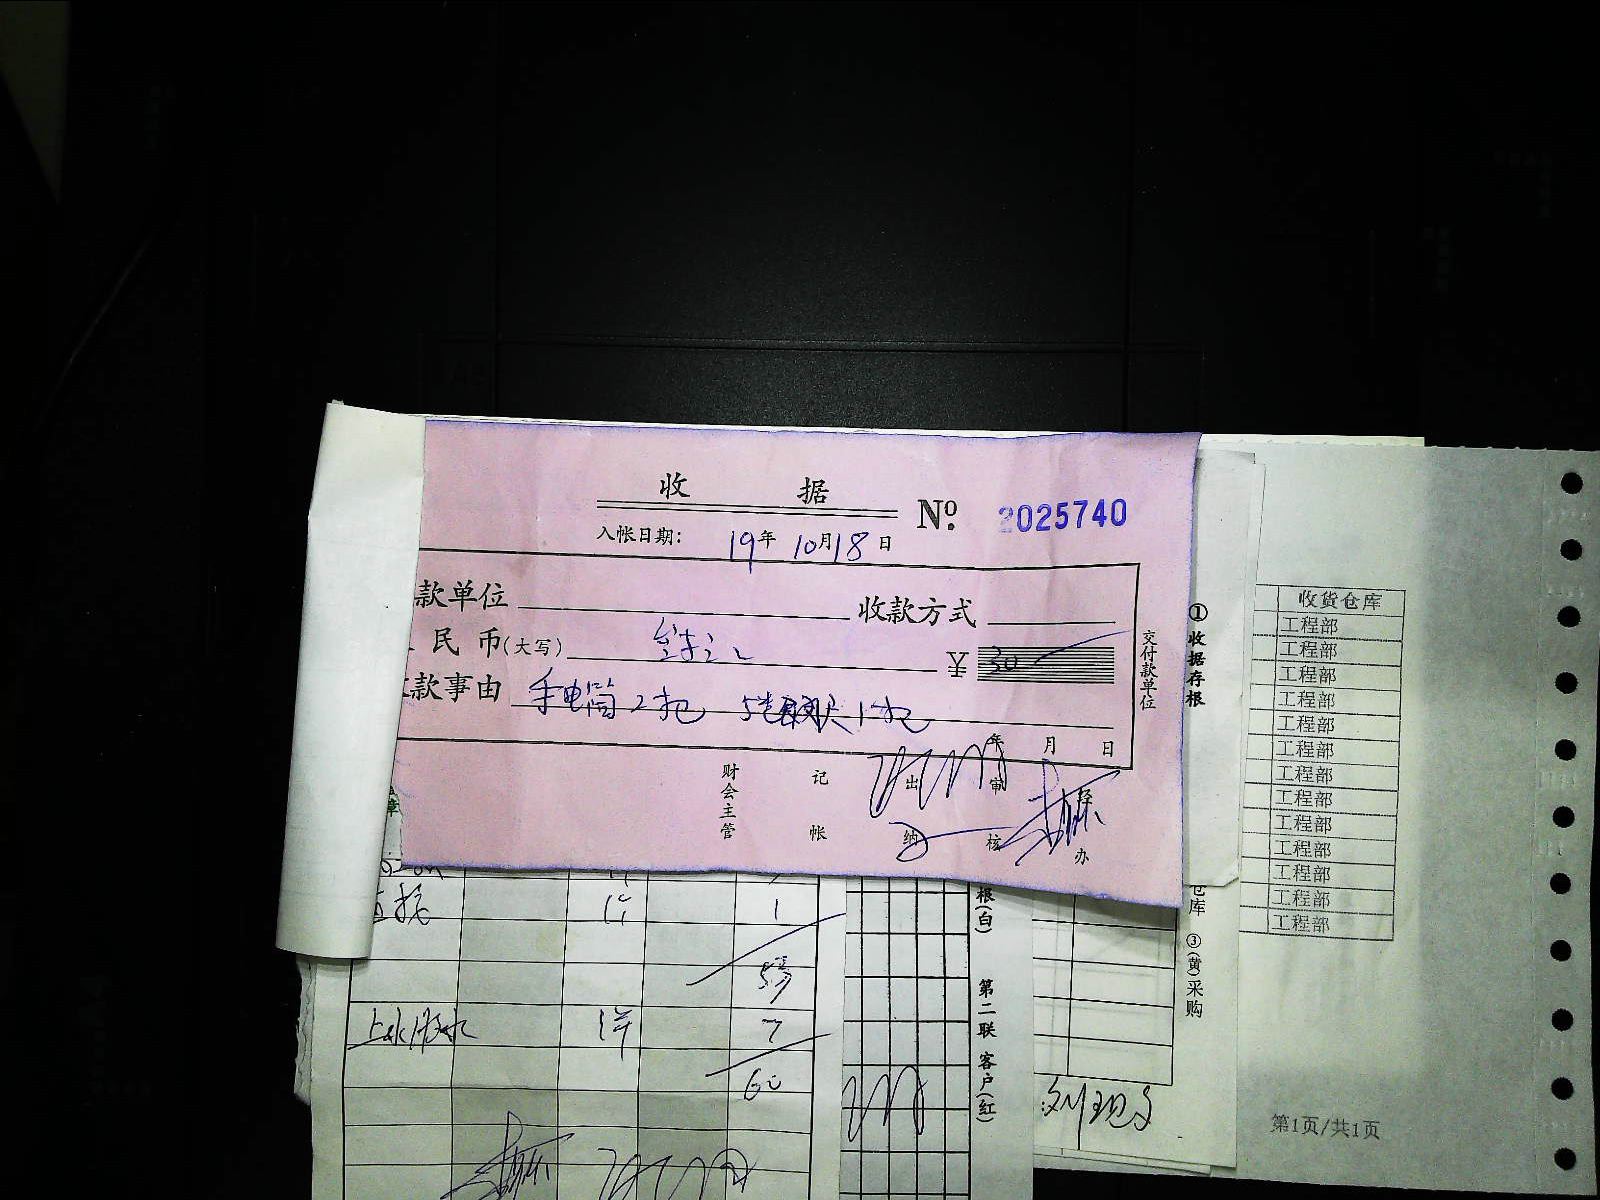 收 据
№ 2025740
入帐日期: 19年 10月18日
款单位 收款方式
民 币(大写) ¥ 30
款事由 手电筒2把 1把
年 月 日
财会主管 记帐 出纳 审核 经办
交付款单位
①收据存根
收货仓库
工程部
工程部
工程部
工程部
工程部
工程部
工程部
工程部
工程部
工程部
工程部
工程部
工程部
第1页/共1页
章
1
7
根(白)
第二联 客户(红)
仓库 ③(黄)采购